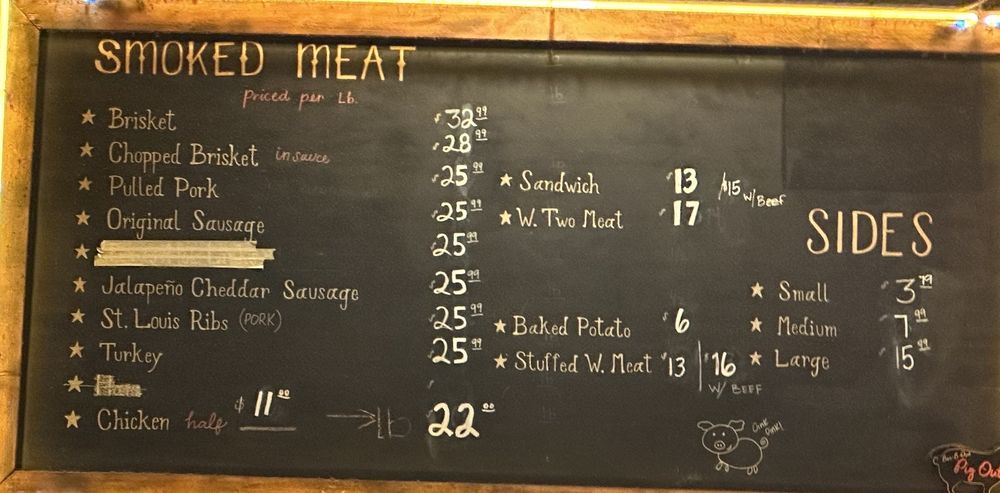 SMOKED MEAT
Priced per Lb.
★ Brisket $32.99
★ Chopped Brisket in sauce $28.99
★ Pulled Pork $25.99
★ Original Sausage $25.99
★ $25.99
★ Jalapeño Cheddar Sausage $25.99
★ St. Louis Ribs (PORK) $25.99
★ Turkey $25.99
★ Chicken half $11.00 → lb 22.00
★ Sandwich $13 /$15 w/Beef
★ W. Two Meat $17
★ Baked Potato $6
★ Stuffed W. Meat $13 | $16
W/ BEEF
SIDES
★ Small $3.79
★ Medium $7.99
★ Large $15.99
OINK
OINK!
Bar-B-Que
Pig Out